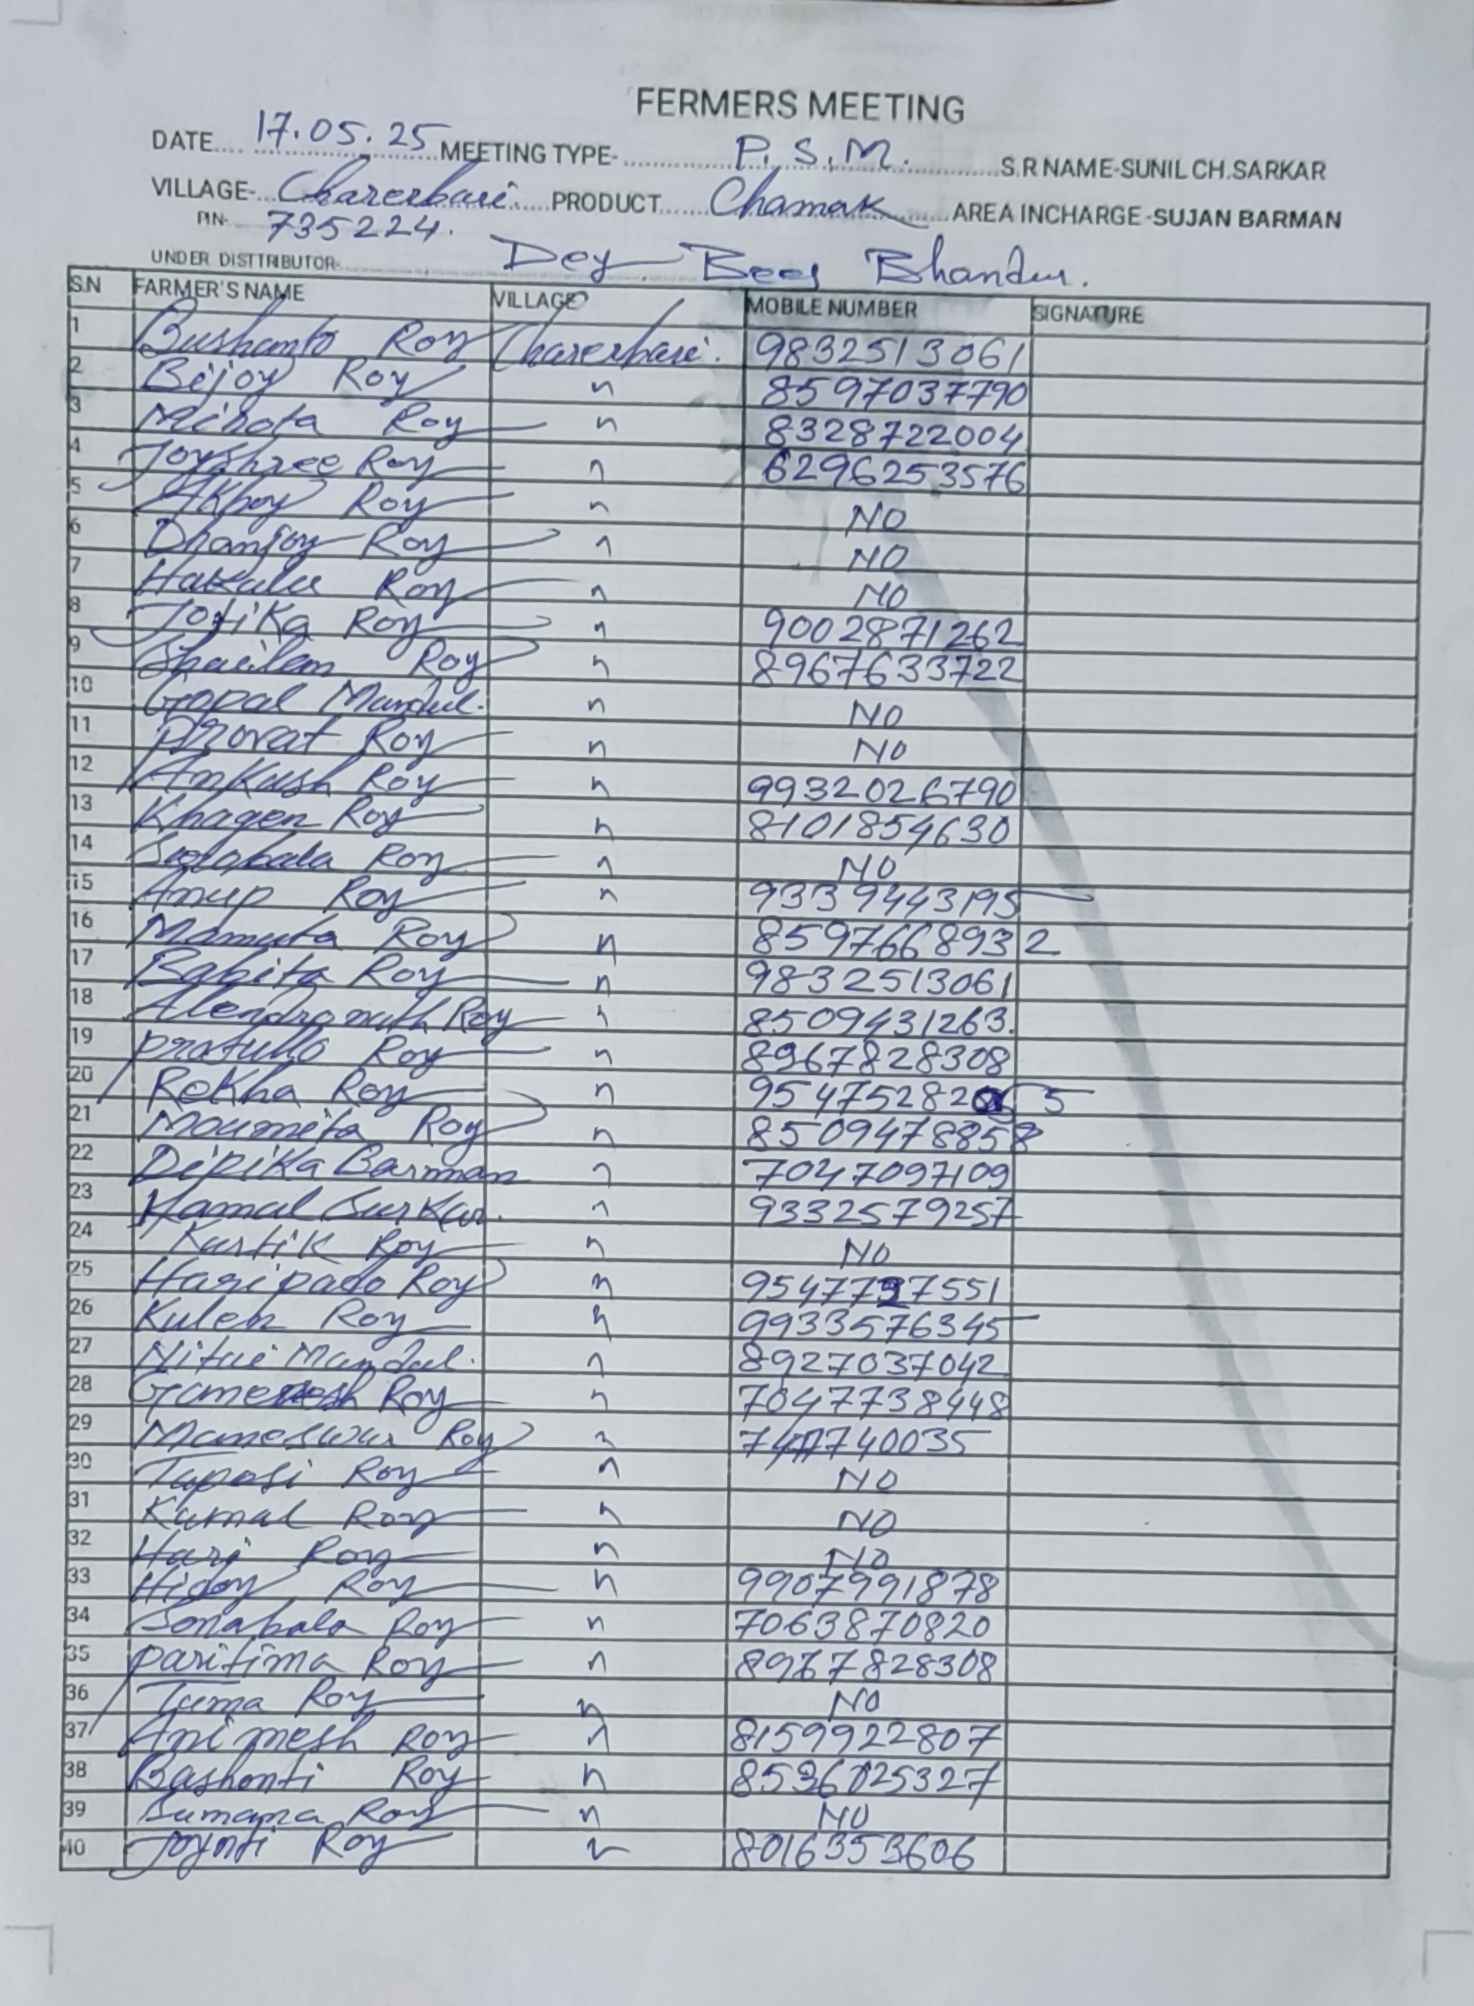 FERMERS MEETING
DATE.... 17.05.25 MEETING TYPE- P.S.M. S.R NAME-SUNIL CH.SARKAR
VILLAGE- Charerbari PRODUCT Chamak AREA INCHARGE-SUJAN BARMAN
PIN- 735224.
UNDER DISTTRIBUTOR- Dey Beej Bhandar.
S.N FARMER'S NAME VILLAGE MOBILE NUMBER SIGNATURE
1 Bushanto Roy Charerbari. 9832513061
2 Bijoy Roy " 8597037790
3 Minota Roy " 8328722004
4 Joyshree Roy " 6296253576
5 Akhoy Roy " NO
6 Dhanjoy Roy " NO
7 Roy " NO
8 Jotika Roy " 9002871262
9 Roy " 8967633722
10 Gopal Mandal. " NO
11 Provat Roy " NO
12 Ankush Roy " 9932026790
13 Khagen Roy " 8101854630
14 Roy " NO
15 Anup Roy " 9339443195
16 Mamata Roy " 8597668932
17 Babita Roy " 9832513061
18 Roy " 8509431263.
19 Prafullo Roy " 8967828308
20 Rekha Roy " 9547528205
21 Moumita Roy " 8509478858
22 Dipika Barman " 7047097109
23 Kamal Sarkar. " 9332579257
24 Kartik Roy " NO
25 Haripado Roy " 9547737551
26 Kulen Roy " 9933576345
27 Nitai Mandal. " 8927037042
28 Roy " 7047738448
29 Maneswar Roy "
30 Taposi Roy " NO
31 Kamal Roy " NO
32 Hari Roy " NO
33 Hidoy Roy " 9907991878
34 Sonabala Roy " 7063870820
35 Paritima Roy " 8967828308
36 Tuma Roy " NO
37 Animesh Roy " 8159922807
38 Bashonti Roy " 8536025327
39 Sumana Roy " NO
40 Joynti Roy " 8016353606